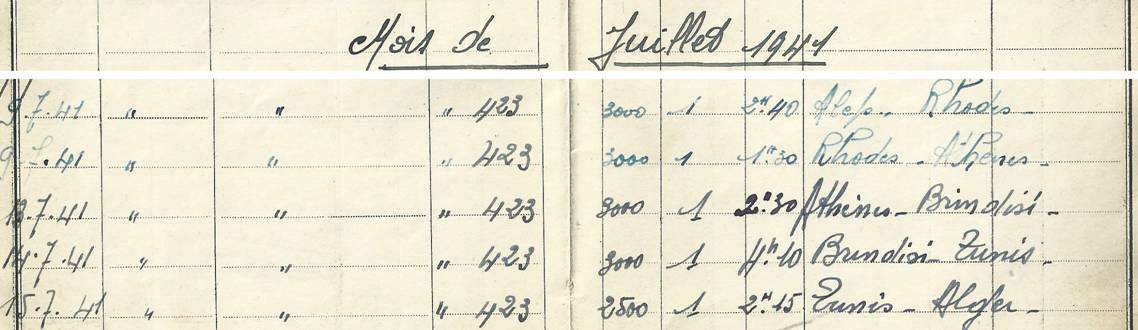 Mois de Juillet 1941
9.7.41 " " " 423 3000 1 2H40 Alep - Rhodes -
9.7.41 " " " 423 3000 1 1H30 Rhodes - Athènes -
13.7.41 " " " 423 3000 1 2H30 Athènes - Brindisi -
14.7.41 " " " 423 3000 1 4H10 Brindisi - Tunis -
15.7.41 " " " 423 2500 1 2H15 Tunis - Alger -